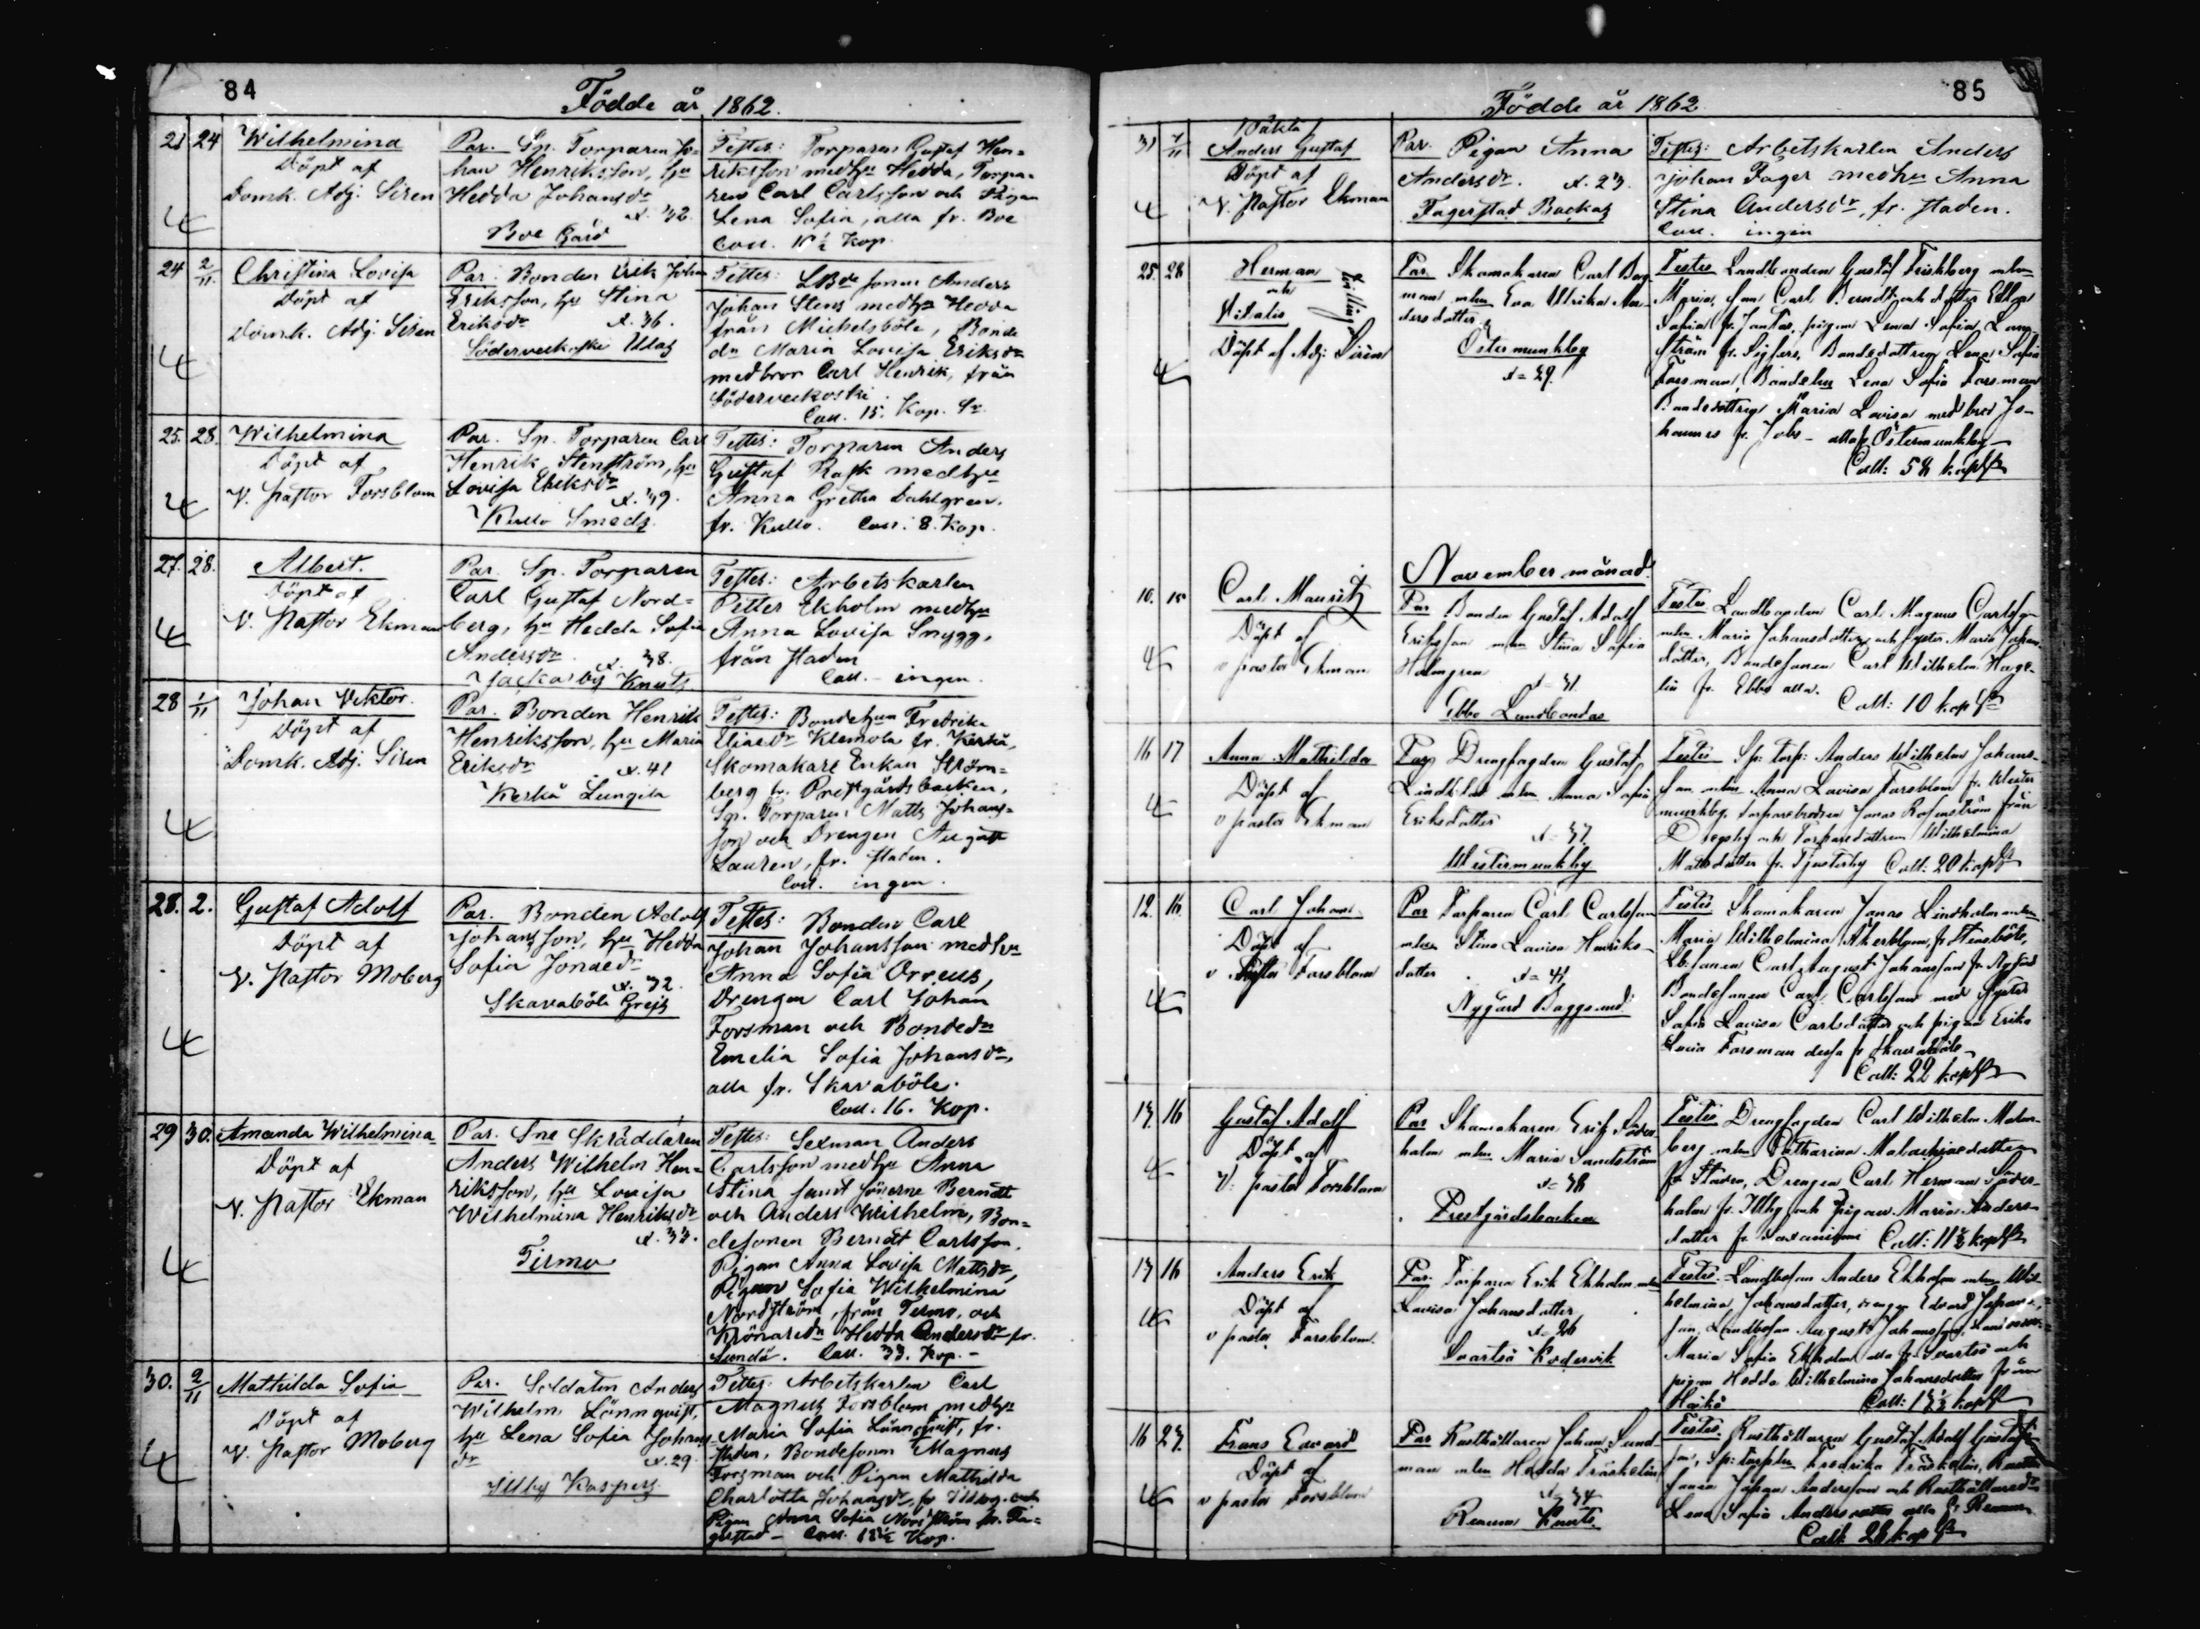 84
Födde år 1862.
21 24 Wilhelmina
Döpt af
Domk. Adj. Siren
Par. Sp. Torparen Jo=
han Henriksson, hu
Hedda Johansdr
Æ. 32.
Boe Gård
Testes: Torparen Gustaf Hen=
riksson med hu Hedda, Torpa=
ren Carl Carlsson och Pigan
Lena Sofia, alla fr. Boe
Coll. 10 1/2 Kop.
24 2/11 Christina Lovisa
Döpt af
Domk. Adj. Siren
Par. Bonden Erik Johan
Eriksson, hu Stina
Eriksdr Æ. 36.
Söderveckoski
Testes: Anders
Johan Stens med hu Hedda
från Michelsböle, Bonde
dr Maria Lovisa Eriksdr
med bror Carl Henrik, från
Söderveckoski.
Coll. 15. Kop. Sr.
25. 28. Wilhelmina
Döpt af
V. Pastor Forsblom
Par. Sp. Torparen Carl
Henrik Stenström, hu
Lovisa Eriksdr
Æ. 39.
Kullo Smeds
Testes: Torparen Anders
Gustaf Rask med hu
Anna Gretha Dahlgren.
fr. Kullo. Coll. 8. Kop.
27. 28. Albert.
Döpt af
V. Pastor Ekman
Par. Sp. Torparen
Carl Gustaf Nord=
berg, hu Hedda Sofia
Andersdr. Æ. 38.
Jackarby Knuts
Testes: Arbetskarlen
Petter Ekholm med hu
Anna Lovisa Snygg,
från staden
Coll. - ingen.
28 1/11 Johan Viktor.
Döpt af
Domk. Adj. Siren
Par. Bonden Henrik
Henriksson, hu Maria
Eriksdr Æ. 41
Kerkå
Testes: Bondehun Fredrika
Eliasdr Klemola fr. Kerkå,
Skomakare Enkan Ström=
berg fr. Prestgårdsbacken,
Sp. Torparen Matts Johans=
son och Drengen August
Lauren, fr. staden.
Coll. ingen.
28. 2. Gustaf Adolf
Döpt af
V. Pastor Moberg
Par. Bonden Adolf
Johansson, hu Hedda
Sofia Jonaedr
Æ. 32.
Skavaböle Greis
Testes: Bonden Carl
Johan Johansson med hu
Anna Sofia Orreus,
Drengen Carl Johan
Forsman och Bondedr
Emelia Sofia Johansdr,
alla fr. Skavaböle.
Coll: 16. Kop.
29 30. Amanda Wilhelmina
Döpt af
V. Pastor Ekman
Par. Sne Skräddaren
Anders Wilhelm Hen=
riksson, hu Lovisa
Wilhelmina Henriksdr
Æ. 33.
Tirmo
Testes: Sexman Anders
Carlsson med hu Anna
Stina samt sönerne Berndt
och Anders Wilhelm, Bon=
desonen Berndt Carlsson,
Pigan Anna Lovisa Mattsdr,
Pigan Sofia Wilhelmina
Nordström, från Tirmo, och
Hedda Andersdr fr.
Sundö. Coll. 33. Kop. -
30. 2/11 Mathilda Sofia
Döpt af
V. Pastor Moberg
Par. Soldaten Anders
Wilhelm Lönnqvist,
hu Lena Sofia Johans=
dr Æ. 29.
Illby Kaspers
Testes: Arbetskarlen Carl
Magnus Forsblom med hu
Maria Sofia Lönnqvist, fr.
staden, Bondesonen Magnus
Forsman och Pigan Mathilda
Charlotta Johansdr, fr Illby. och
Pigan Anna Sofia Nordström fr. Fa=
gerstad - Coll. Kop.
85
Födde år 1862
31 7/11
Anders Gustaf
Döpt af
V. Pastor Ekman
Par. Pigan Anna
Andersdr. Æ. 23.
Fagerstad Backas
Testes: Arbetskarlen Anders
Johan Fager med hu Anna
Stina Andersdr, fr. staden.
Coll. ingen
25. 28 Herman
och
Vitalis
Döpt af Adj: Sirén
Par Skomakaren Carl Berg
man m hu Eva Ulrika An
dersdotter
Östermunkby
Æ = 29.
Testes Landbonden Gustaf Friskberg m hu
Maria, son Carl Berndt och dotter
Sofia fr. pigan Lena Sofia Lång
ström fr. Bondedottren Lena Sofia
Forsman, Bondehu Lena Sofia Forsman
Bondedottren Maria Lovisa med bror Jo-
hannes fr. Jobs - alla fr Östermunkby
Coll: kop
November månad.
10. 15 Carl Mauritz
Döpt af
v pastor Ekman
Par Bonden Gustaf Adolf
Eriksson m hu Stina Sofia
Holmgren
Æ = 31.
Ebbo Landbondas
Testes Landbonden Carl Magnus Carlsson
m hu Maria Johansdotter, och syster Maria Johans
dotter, Bondesonen Carl Wilhelm Hage-
lin fr. Ebbo alla. Coll: 10 kop
16 17 Anna Mathilda
Döpt af
v pastor Ekman
Par Drengfogden Gustaf
m hu Anna Sofia
Eriksdotter
Æ = 37
Westermunkby
Testes Sp: torp: Anders Wilhelm Johans-
son m hu Anna Lovisa Forsblom fr. Wester
munkby, Jonas Rosenström från
och Torparedottren Wilhelmina
Mattsdotter fr. Tjusterby Coll: 20 kop
12. 16. Carl Johan
Döpt af
v Pastor Forsblom
Par Torparen Carl Carlsson
m hu Stina Lovisa Henriks-
dotter
Æ = 41
Nygård Baggsund
Testes Skomakaren Jonas Lindholm m hu
Maria Wilhelmina Åkerblom, fr Stensböle,
Carl August Johansson fr. Nygård
Bondesonen Carl Carlsson med syster
Sofia Lovisa Carlsdotter och pigan Erika
Lovisa Forsman dessa fr Skavaböle
Coll: 22 kop
13. 16 Gustaf Adolf
Döpt af
V. pastor Forsblom
Par Skomakaren Erik Söder
holm m hu Maria Sandström
Æ = 38
Prestgårdsbacken
Testes Drengfogden Carl Wilhelm Malm-
berg m hu Catharina Malachiaedotter
fr Staden, Drengen Carl Herman Söder-
holm fr. Illby och pigan Maria Anders-
dotter fr Coll: 11 1/2 kop
13 16 Anders Erik
Döpt af
v pastor Forsblom.
Par. Torparen Erik Ekholm m hu
Lovisa Johansdotter
Æ = 26
Svartsö Kodervik
Testes. Landboson Anders Ekholm m hu Wil-
helmina Johansdotter, drengen Edvard Johans-
son, Landboson August Johansson,
Maria Sofia Ekholm alla fr. Svartsö och
pigan Hedda Wilhelmina Johansdotter från
Haikå Coll: kop
16 23. Frans Edvard
Döpt af
v pastor Forsblom
Par Rusthållaren Johan Sund
man m hu Hedda Träskelin
Æ = 34
Renum Knuts.
Testes. Rusthållaren Gustaf Adolf Gustafs-
son, Fredrika Träskelin,
sonen Johan Andersson och Rusthållaredr
Lena Sofia Andersdotter alla fr Renum
Coll: 28 kop